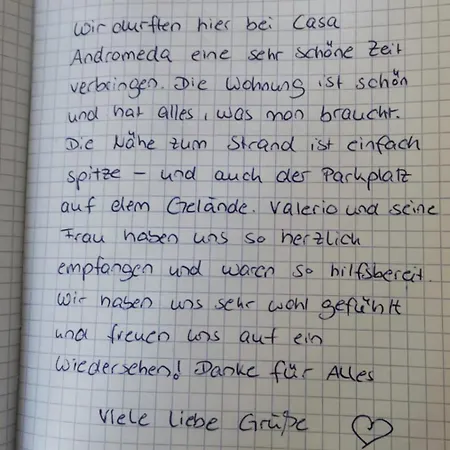 Wir durften hier bei Casa
Andromeda eine sehr schöne Zeit
verbringen. Die Wohnung ist schön
und hat alles, was man braucht.
Die Nähe zum Strand ist einfach
spitze – und auch der Parkplatz
auf dem Gelände. Valerio und seine
Frau haben uns so herzlich
empfangen und waren so hilfsbereit.
Wir haben uns sehr wohl gefühlt
und freuen uns auf ein
Wiedersehen! Danke für Alles
Viele liebe Grüße ♡